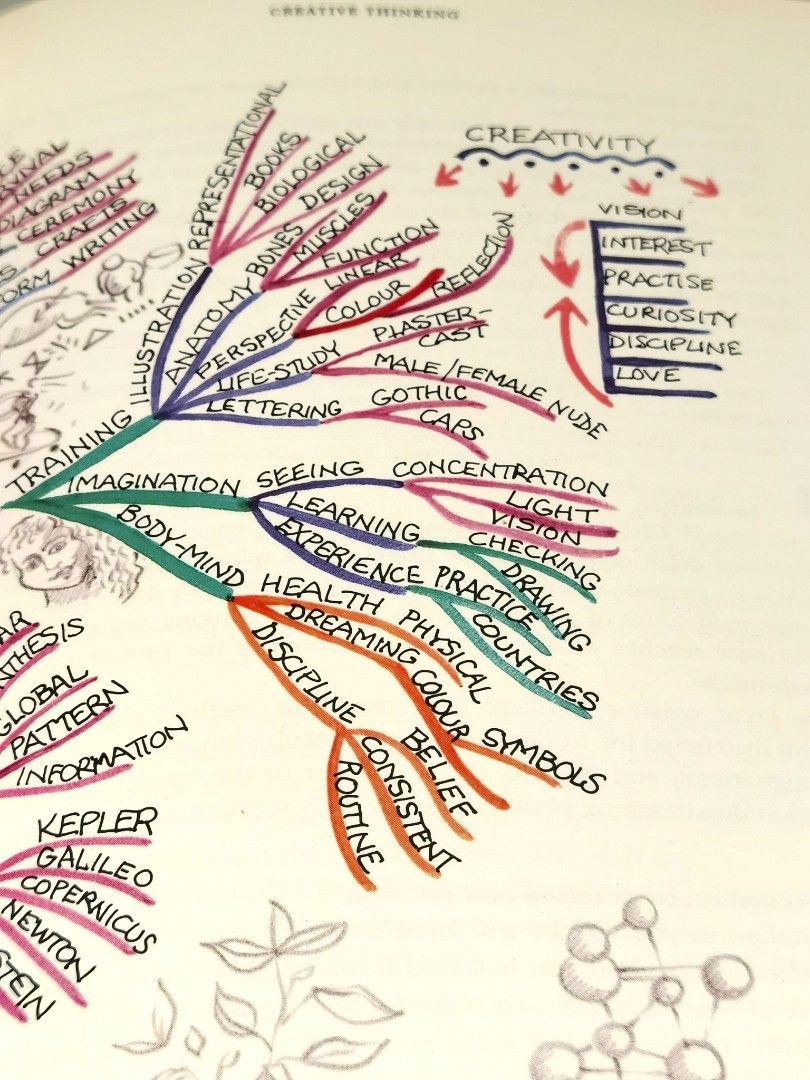 CREATIVE THINKING
NEEDS
DIAGRAM
CEREMONY
CRAFTS
WRITING
TRAINING
ILLUSTRATION
REPRESENTATIONAL
BOOKS
BIOLOGICAL
DESIGN
ANATOMY
BONES
MUSCLES
FUNCTION
PERSPECTIVE
LINEAR
COLOUR
REFLECTION
LIFE-STUDY
PLASTER-
CAST
MALE/FEMALE NUDE
LETTERING
GOTHIC
CAPS
CREATIVITY
VISION
INTEREST
PRACTISE
CURIOSITY
DISCIPLINE
LOVE
IMAGINATION
SEEING
CONCENTRATION
LIGHT
VISION
LEARNING
CHECKING
DRAWING
EXPERIENCE
PRACTICE
COUNTRIES
BODY-MIND
HEALTH
PHYSICAL
DREAMING
COLOUR
SYMBOLS
DISCIPLINE
BELIEF
CONSISTENT
ROUTINE
GLOBAL
PATTERN
INFORMATION
KEPLER
GALILEO
COPERNICUS
NEWTON